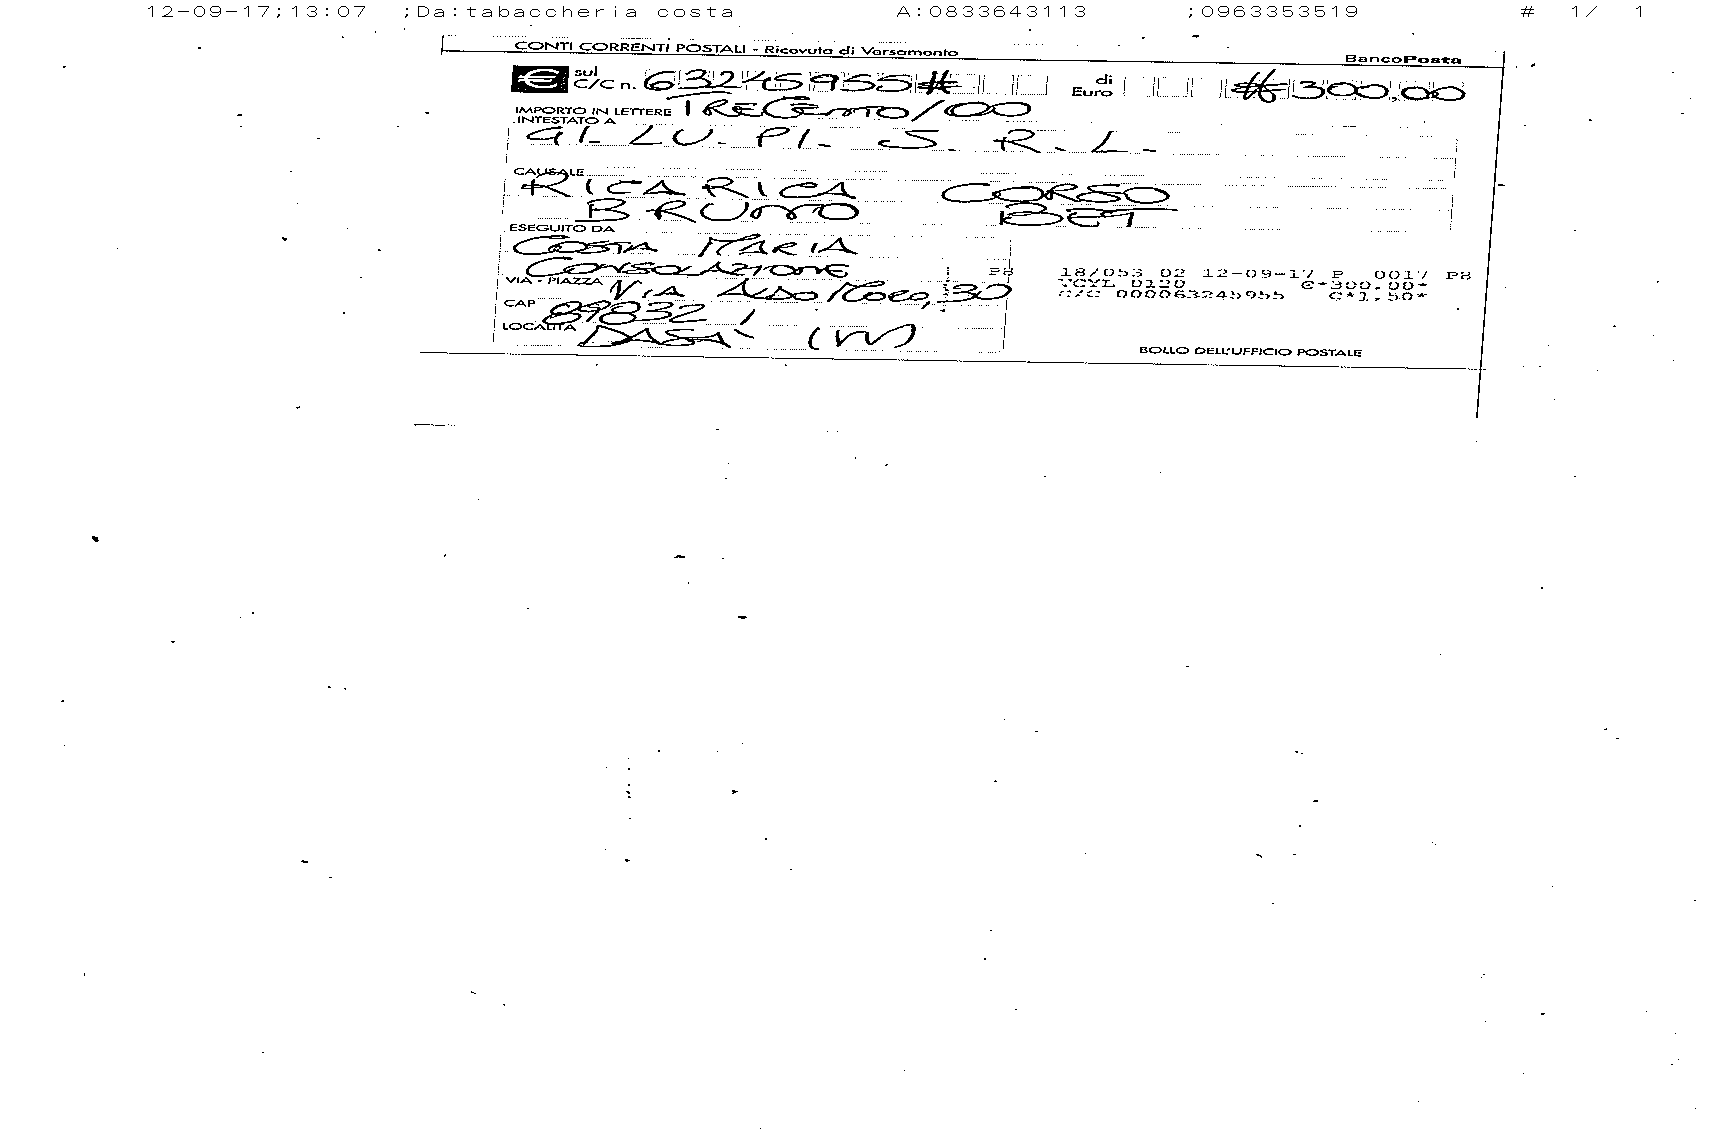 12-09-17;13:07 ;Da:tabaccheria costa A:0833643113 ;0963353519 # 1/ 1
CONTI CORRENTI POSTALI - Ricevuta di Versamento BancoPosta
€ sul C/C n. 63245955# di Euro # 300,00
IMPORTO IN LETTERE TRECENTO/00
INTESTATO A
GI.LU.PI. S.R.L.
CAUSALE
RICARICA CORSO
BRUNO BET
ESEGUITO DA
COSTA MARIA
CONSOLAZIONE
VIA - PIAZZA VIA ALDO MORO, 30
CAP 89832
LOCALITÀ DASA' (VV)
P8
18/053 02 12-09-17 P 0017 P8
VCYL 0120 €*300,00*
C/C 000063245955 €*1,50*
BOLLO DELL'UFFICIO POSTALE